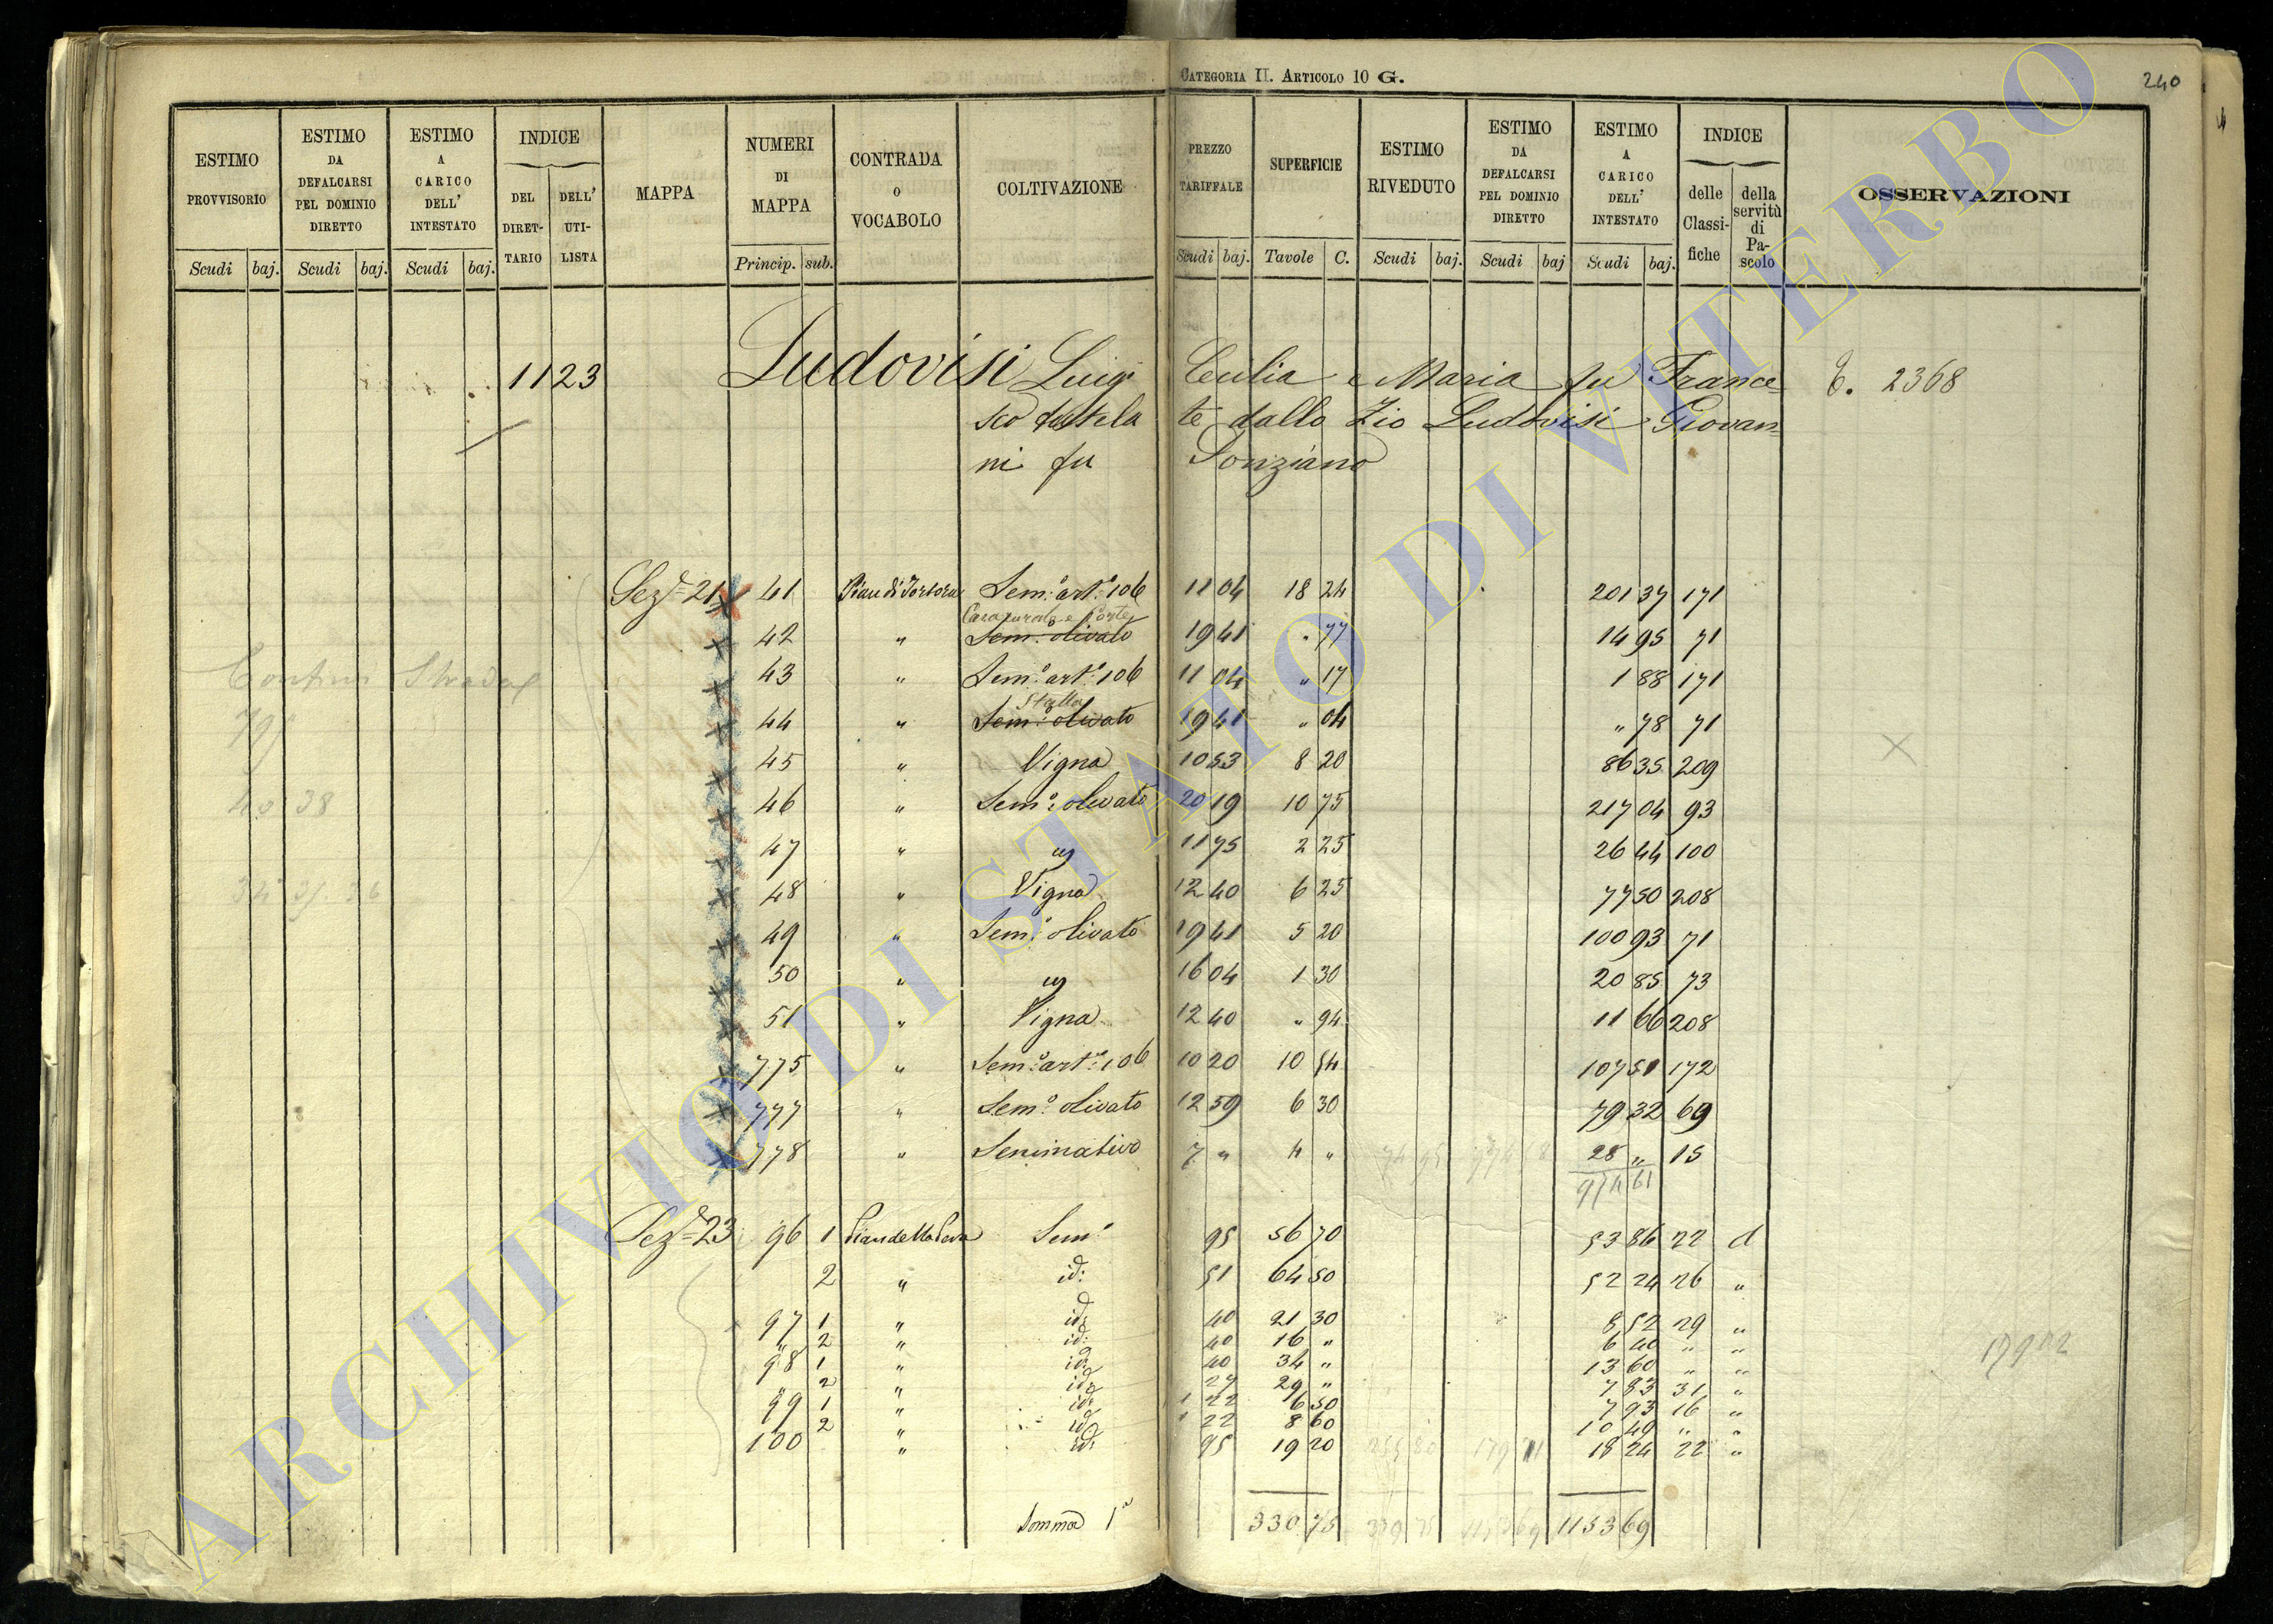 CATEGORIA II. ARTICOLO 10 G.
240
ESTIMO PROVVISORIO
ESTIMO DA DEFALCARSI PEL DOMINIO DIRETTO
ESTIMO A CARICO DELL' INTESTATO
INDICE
DEL DIRETTARIO
DELL' UTILISTA
MAPPA
NUMERI DI MAPPA
CONTRADA O VOCABOLO
COLTIVAZIONE
PREZZO TARIFFALE
SUPERFICIE
ESTIMO RIVEDUTO
ESTIMO DA DEFALCARSI PEL DOMINIO DIRETTO
ESTIMO A CARICO DELL' INTESTATO
INDICE
delle Classifiche
della servitù di Pascolo
OSSERVAZIONI
Scudi baj. Scudi baj. Scudi baj. Princip. sub. Scudi baj. Tavole C. Scudi baj. Scudi baj Scudi baj.
1123 Ludovisi Luigi Cecilia e Maria fu France= E. 2368
sco tutela te dallo Zio Ludovisi Giovan=
ni fu Ponziano
Sez.e 21 41 Pian di Tortora Sem.o art.o 106 11 04 18 24 201 37 171
Casa rurale e Corte
42 " Sem.o olivato 19 41 " 77 14 95 71
Confini Strada
43 " Sem.o art.o 106 11 04 " 17 1 88 171
Stalla
44 " Sem.o olivato 19 41 " 04 " 78 71
45 " Vigna 10 53 8 20 86 35 209
40 38
46 " Sem.o olivato 20 19 10 75 217 04 93
47 " 11 75 2 25 26 44 100
48 " Vigna 12 40 6 25 77 50 208
49 " Sem.o olivato 19 41 5 20 100 93 71
50 " 16 04 1 30 20 85 73
51 " Vigna 12 40 " 94 11 66 208
775 " Sem.o art.o 106 10 20 10 54 107 51 172
777 " Sem.o olivato 12 59 6 30 79 32 69
778 " Seminativo 7 " 4 " 28 " 15
974 61
Sez.e 23 96 1 Pian della Sem.o 95 56 70 53 86 22 d
2 " id: 81 64 50 52 24 26 "
97 1 " id: 40 21 30 8 52 29 "
" 2 " id: 40 16 " 6 40 " "
98 1 " id: 40 34 " 13 60 " "
" 2 " id: 27 29 " 7 83 31 "
99 1 " id: 1 22 6 50 7 93 16 "
" 2 " id: 1 22 8 60 10 49 " "
100 " id: 95 19 20 18 24 22 "
Somma 1a 330 75 1153 69
ARCHIVIO DI STATO DI VITERBO